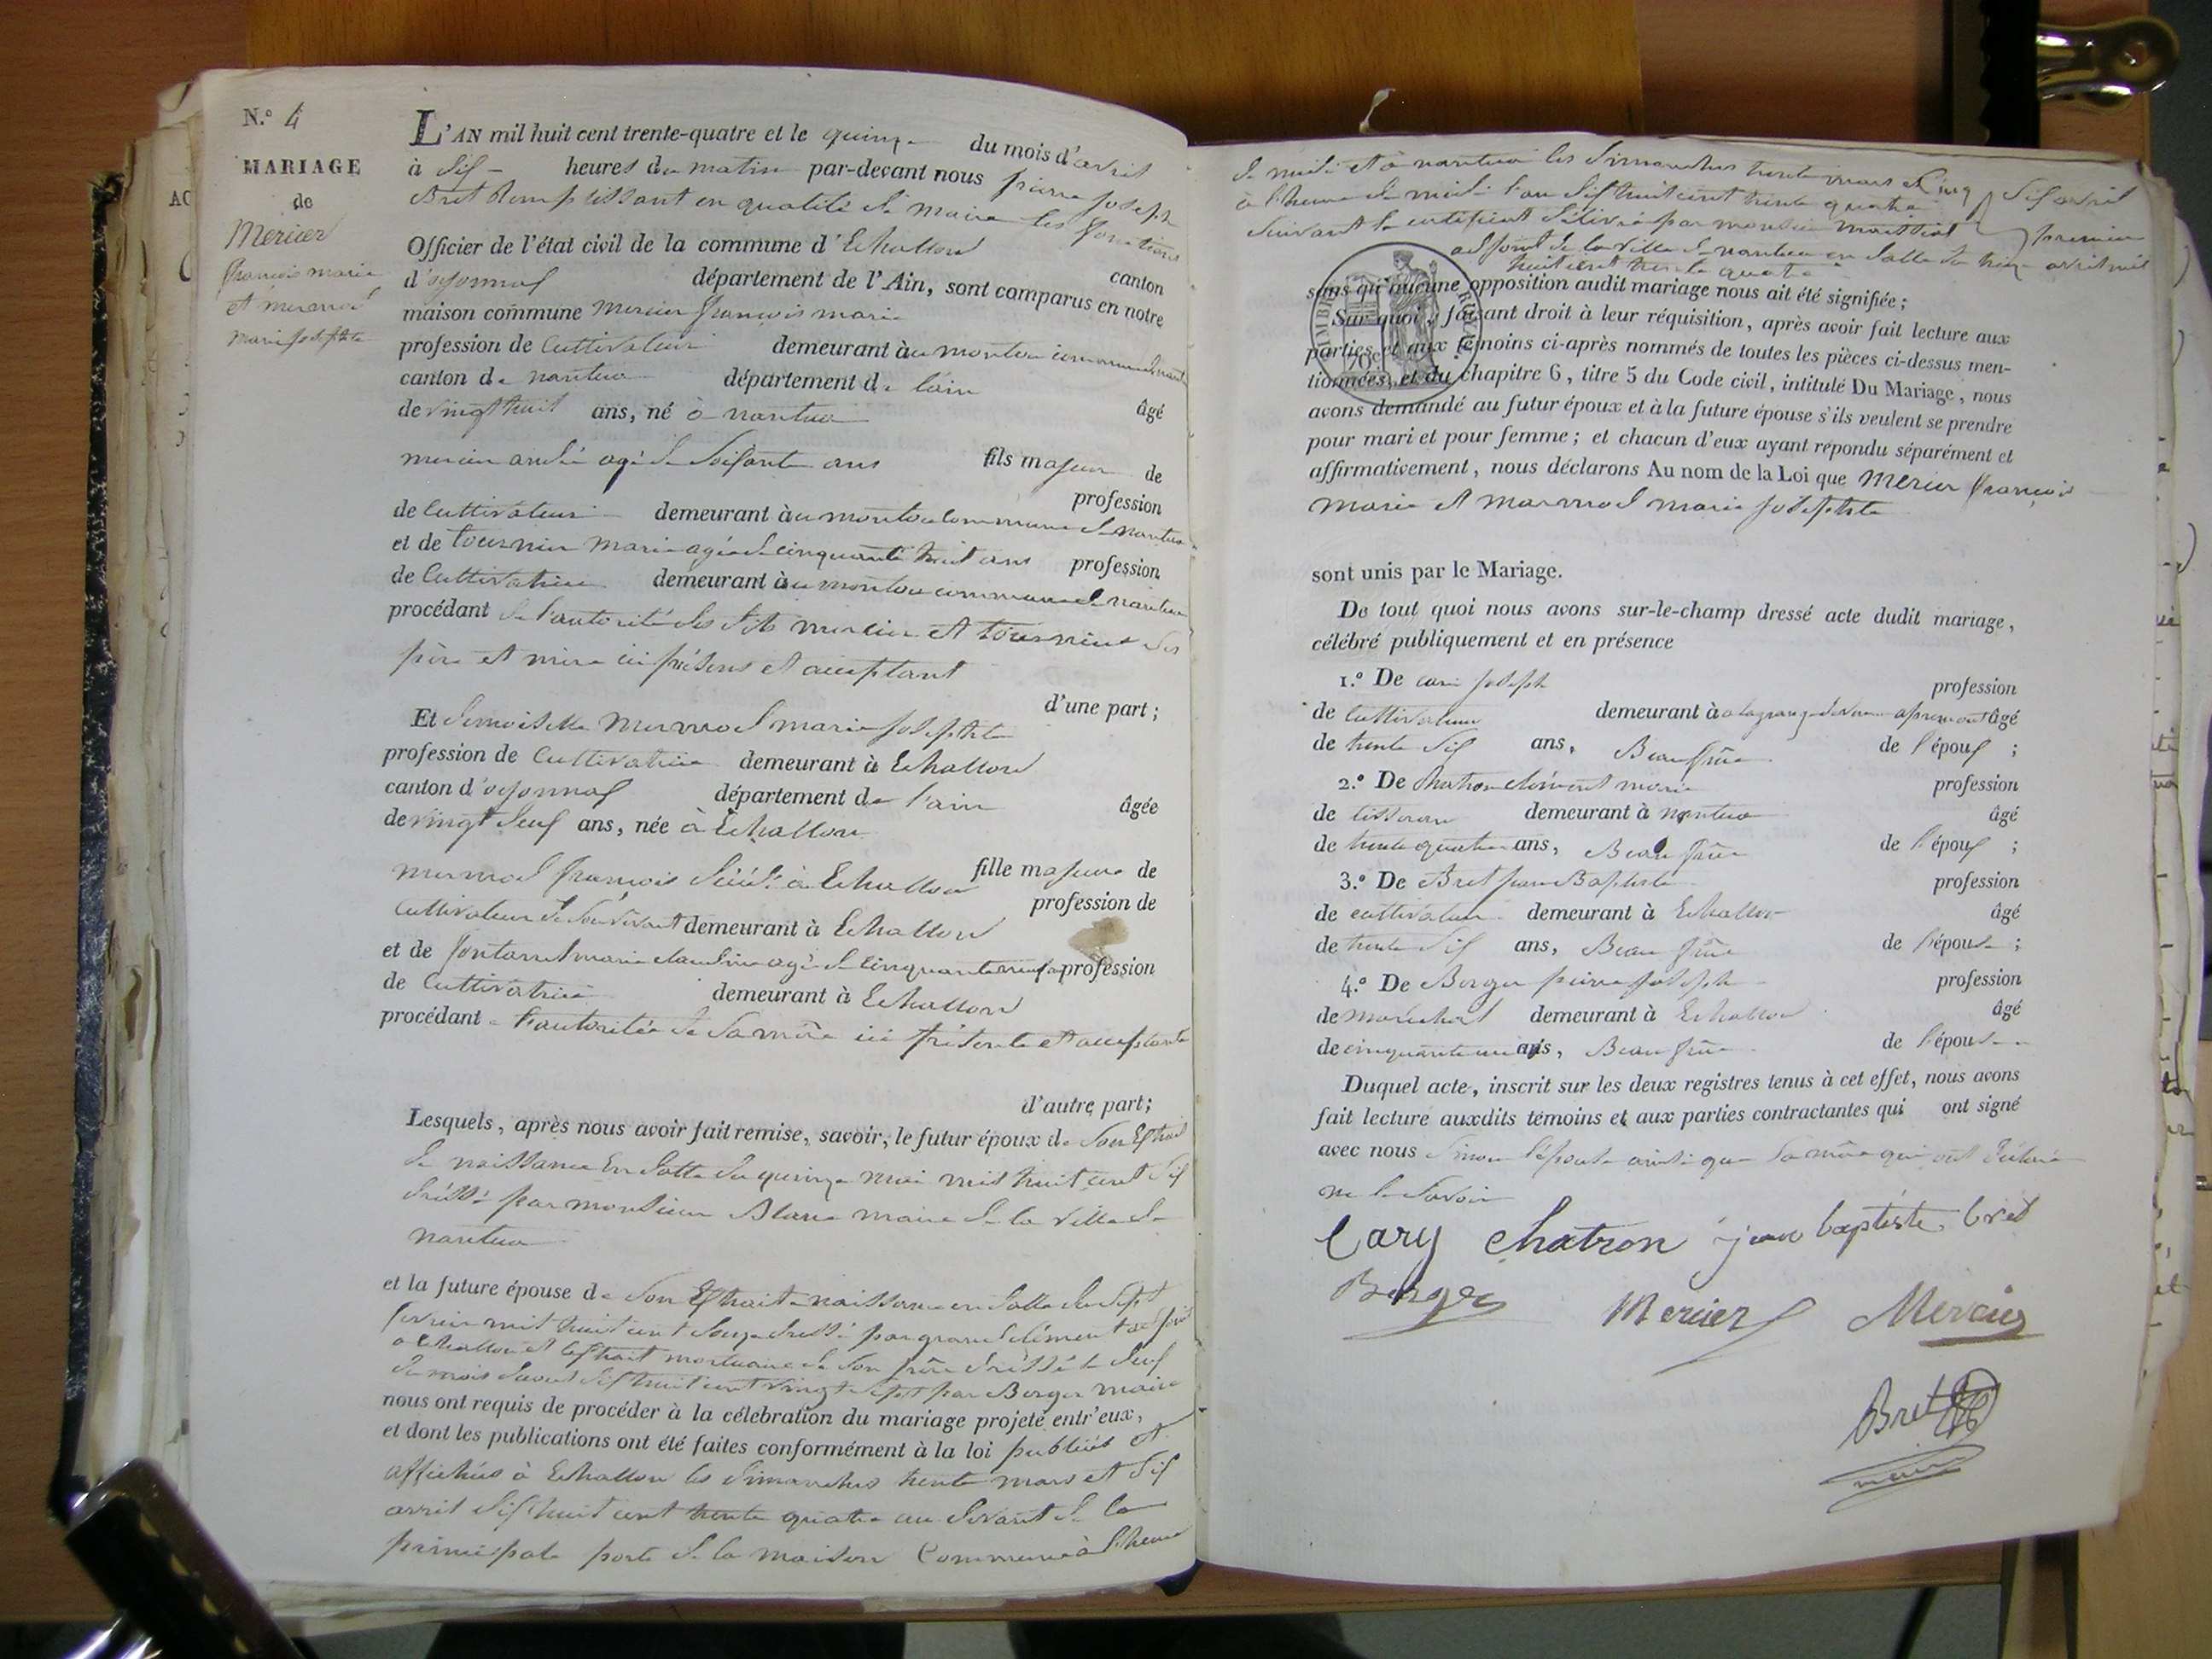 N.° 4
MARIAGE
de
Mercier
françois marie
et mermod
marie josephte
L'AN mil huit cent trente-quatre et le quinze du mois d'avril
à dix heures du matin par-devant nous pierre joseph
Bret Remplissant en qualité de maire les fonctions
Officier de l'état civil de la commune d'Echallon
canton
d'oyonnax département de l'Ain, sont comparus en notre
maison commune Mercier françois marie
profession de Cultivateur demeurant à au montou commune de nantua
canton de nantua département de lain
âgé
de vingt huit ans, né à nantua
fils majeur de
mercier andré agé de Soixante ans
profession
de Cultivateur demeurant à au montou Commune de nantua
et de tournier marie agée de cinquante huit ans profession
de Cultivatrice demeurant à au montou commune de nantua
procédant de l'autorité des dits mercier et tournier ses
père et mère ici présens et acceptant
d'une part ;
Et demoiselle Mermod marie josephte
profession de Cultivatrice demeurant à Echallon
canton d'oyonnax département de l'ain
âgée
de vingt deux ans, née à Echallon
fille majeure de
mermod françois décédé à Echallon
profession de
Cultivateur de Son vivant demeurant à Echallon
et de fontanel marie claudine agé de cinquante neuf profession
de Cultivatrice demeurant à Echallon
procédant l'autoritée de Sa mère ici présente et acceptante
d'autre part ;
Lesquels, après nous avoir fait remise, savoir, le futur époux de Son Extrait
de naissance En datte du quinze mai mil huit cent Six
dressé par monsieur Blanc maire de la ville de
nantua
et la future épouse de Son Extrait naissance en datte du Sept
fevrier mil huit cent douze dressé par grand clément adjoint
a Echallon et lextrait mortuaire de Son père dressé le deux
du mois daout dix huit cent vingt Sept par Berger maire
nous ont requis de procéder à la célébration du mariage projeté entr'eux,
et dont les publications ont été faites conformément à la loi publiées et
affichées à Echallon les dimanches trente mars et Six
avril dix huit cent trente quatre au devant de la
principale porte de la maison Commune à l'heure
de midi et à nantua les dimanches trente mars et
à l'heure de midi l'an dix huit cent trente quatre
Suivant le certificat délivré par monsieur
adjoint de la ville de nantua en datte du treize avril mil
huit cent trente quatre
Six avril
premier
TIMBRE ROYAL
70c
sans qu'aucune opposition audit mariage nous ait été signifiée ;
Sur quoi, faisant droit à leur réquisition, après avoir fait lecture aux
parties et aux témoins ci-après nommés de toutes les pièces ci-dessus men-
tionnées, et du chapitre 6, titre 5 du Code civil, intitulé Du Mariage, nous
avons demandé au futur époux et à la future épouse s'ils veulent se prendre
pour mari et pour femme ; et chacun d'eux ayant répondu séparément et
affirmativement, nous déclarons Au nom de la Loi que Mercier françois
marie et Marmod marie josephte
sont unis par le Mariage.
De tout quoi nous avons sur-le-champ dressé acte dudit mariage,
célébré publiquement et en présence
1.° De cari joseph profession
de Cultivateur demeurant à apremont âgé
de trente Six ans, Beau frère de l'époux ;
2.° De Chatron clément marie profession
de tisseran demeurant à nantua âgé
de trente quatre ans, Beau frère de l'époux ;
3.° De Bret jean Baptiste profession
de cultivateur demeurant à Echallon âgé
de trente Six ans, Beau frère de l'épouse ;
4.° De Berger pierre joseph profession
de maréchal demeurant à Echallon âgé
de cinquante un ans, Beau frère de l'épouse
Duquel acte, inscrit sur les deux registres tenus à cet effet, nous avons
fait lecture auxdits témoins et aux parties contractantes qui ont signé
avec nous Sinon l'épouse ainsi que Sa mère qui ont déclaré
ne le Savoir
Cary chatron jean baptiste bret
Berger Mercier Mercier
Bret
maire